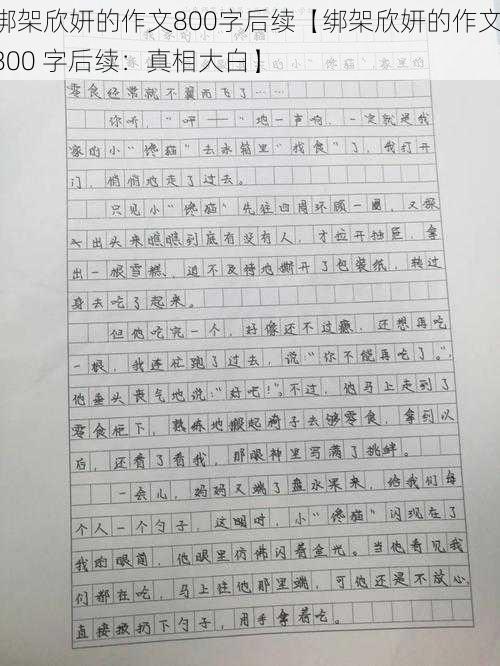 绑架欣妍的作文800字后续【绑架欣妍的作文
800 字后续：真相大白】
“馋猫”，家里的
零食经常就不翼而飞了……
你听，“ ——”地一声响，一定就是我
家的小“馋猫”去冰箱里“找食”了，我打开
门，悄悄地走了过去。
只见小“馋猫”先往四周环顾一圈，又探
出头来瞧瞧到底有没有人，才拉开抽屉，拿
出一根雪糕、迫不及待地撕开了包装纸，转过
身去吃了起来。
但他吃完一个，好像还不过瘾，还想再吃
一根，我连忙跑了过去，说：“你不能再吃了。”，
他垂头丧气地说：“好吧！”。不过，他马上走到了
零食柜下，熟练地搬起椅子去够零食，拿到以
后，还看了看我，那眼神里写满了挑衅。
一会儿，妈妈又端了盘水果来，给我们每
个人一个勺子，这时，小“馋猫”闪现在了
我的眼前，他眼里仿佛闪着金光。当他看见我
们都在吃，马上往他那里端，可他还是不放心，
直接 扔下勺子，用手拿着吃。